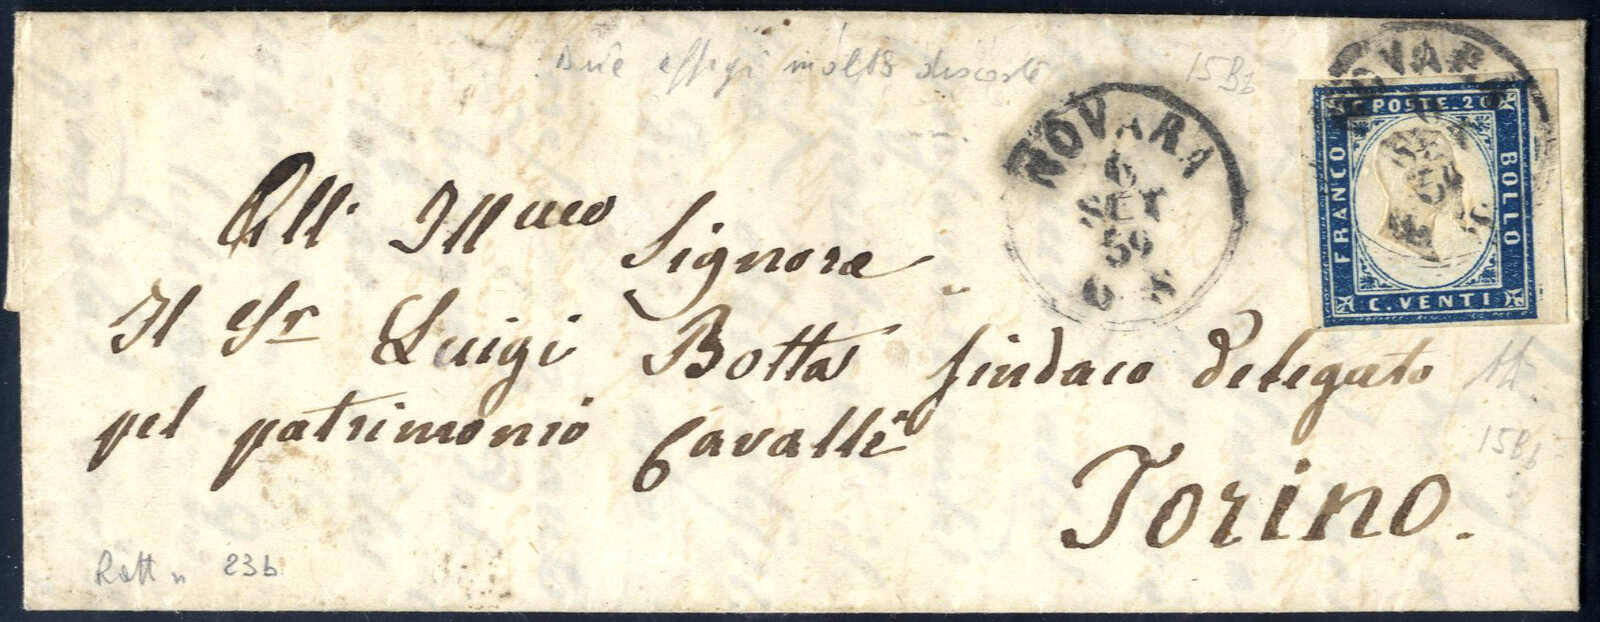 Due effigi molto discoste 15Bb
NOVARA
6
SET
56
NOVARA
C. POSTE. 20
FRANCO
BOLLO
C. VENTI
All' Ill.mo Signore
Il Sr Luigi Botta Sindaco delegato
pel patrimonio Cavalli
15Bb
Torino.
Ratt n 23b